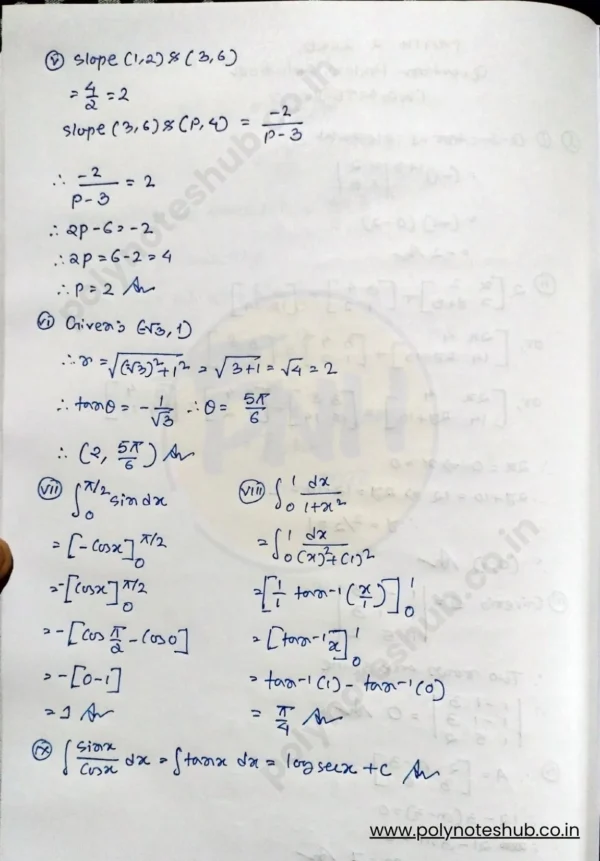 (v) Slope (1,2) & (3,6)
= 4/2 = 2
Slope (3,6) & (P,4) = -2/(P-3)
∴ -2/(P-3) = 2
∴ 2P-6 = -2
∴ 2P = 6-2 = 4
∴ P = 2 Ans
(vi) Given: (-√3, 1)
∴ r = √((-√3)²+1²) = √(3+1) = √4 = 2
∴ tanθ = -1/√3 ∴ θ = 5π/6
∴ (2, 5π/6) Ans
(vii) ∫₀^(π/2) sin dx
= [-cosx]₀^(π/2)
= -[cosx]₀^(π/2)
= -[cos π/2 - cos0]
= -[0-1]
= 1 Ans
(viii) ∫₀¹ dx/(1+x²)
= ∫₀¹ dx/((x)²+(1)²)
= [1/1 tan⁻¹(x/1)]₀¹
= [tan⁻¹x]₀¹
= tan⁻¹(1) - tan⁻¹(0)
= π/4 Ans
(ix) ∫ sinx/cosx dx = ∫tanx dx = log secx + C Ans
polynoteshub.co.in
PNH
polynoteshub.co.in
www.polynoteshub.co.in